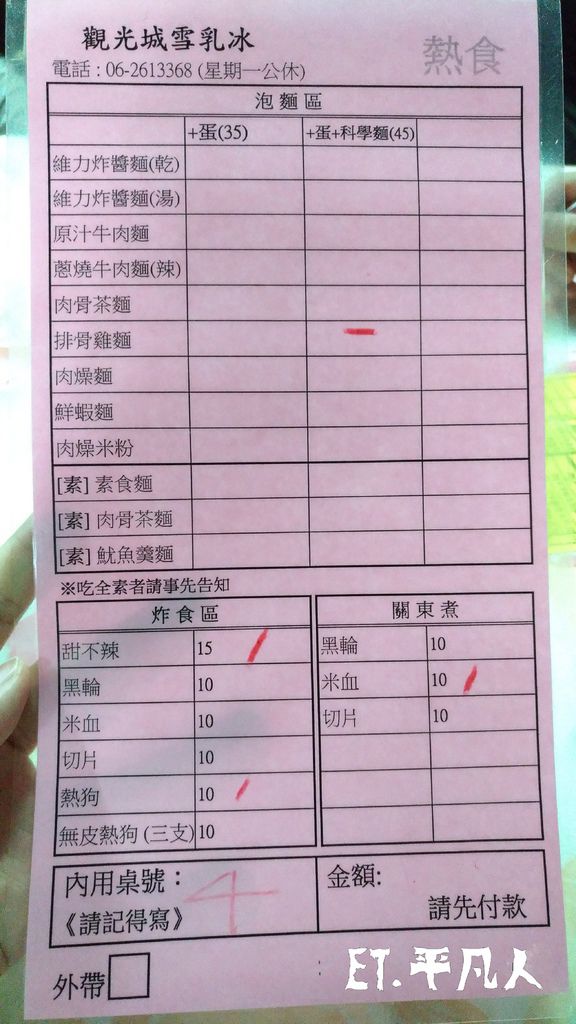 觀光城雪乳冰
熱食
電話 : 06-2613368 (星期一公休)
泡麵區
+蛋(35) +蛋+科學麵(45)
維力炸醬麵(乾)
維力炸醬麵(湯)
原汁牛肉麵
蔥燒牛肉麵(辣)
肉骨茶麵
排骨雞麵
肉燥麵
鮮蝦麵
肉燥米粉
[素] 素食麵
[素] 肉骨茶麵
[素] 魷魚羹麵
※吃全素者請事先告知
炸食區
甜不辣 15
黑輪 10
米血 10
切片 10
熱狗 10
無皮熱狗 (三支) 10
關東煮
黑輪 10
米血 10
切片 10
內用桌號： 4
《請記得寫》
金額:
請先付款
外帶
ET.平凡人